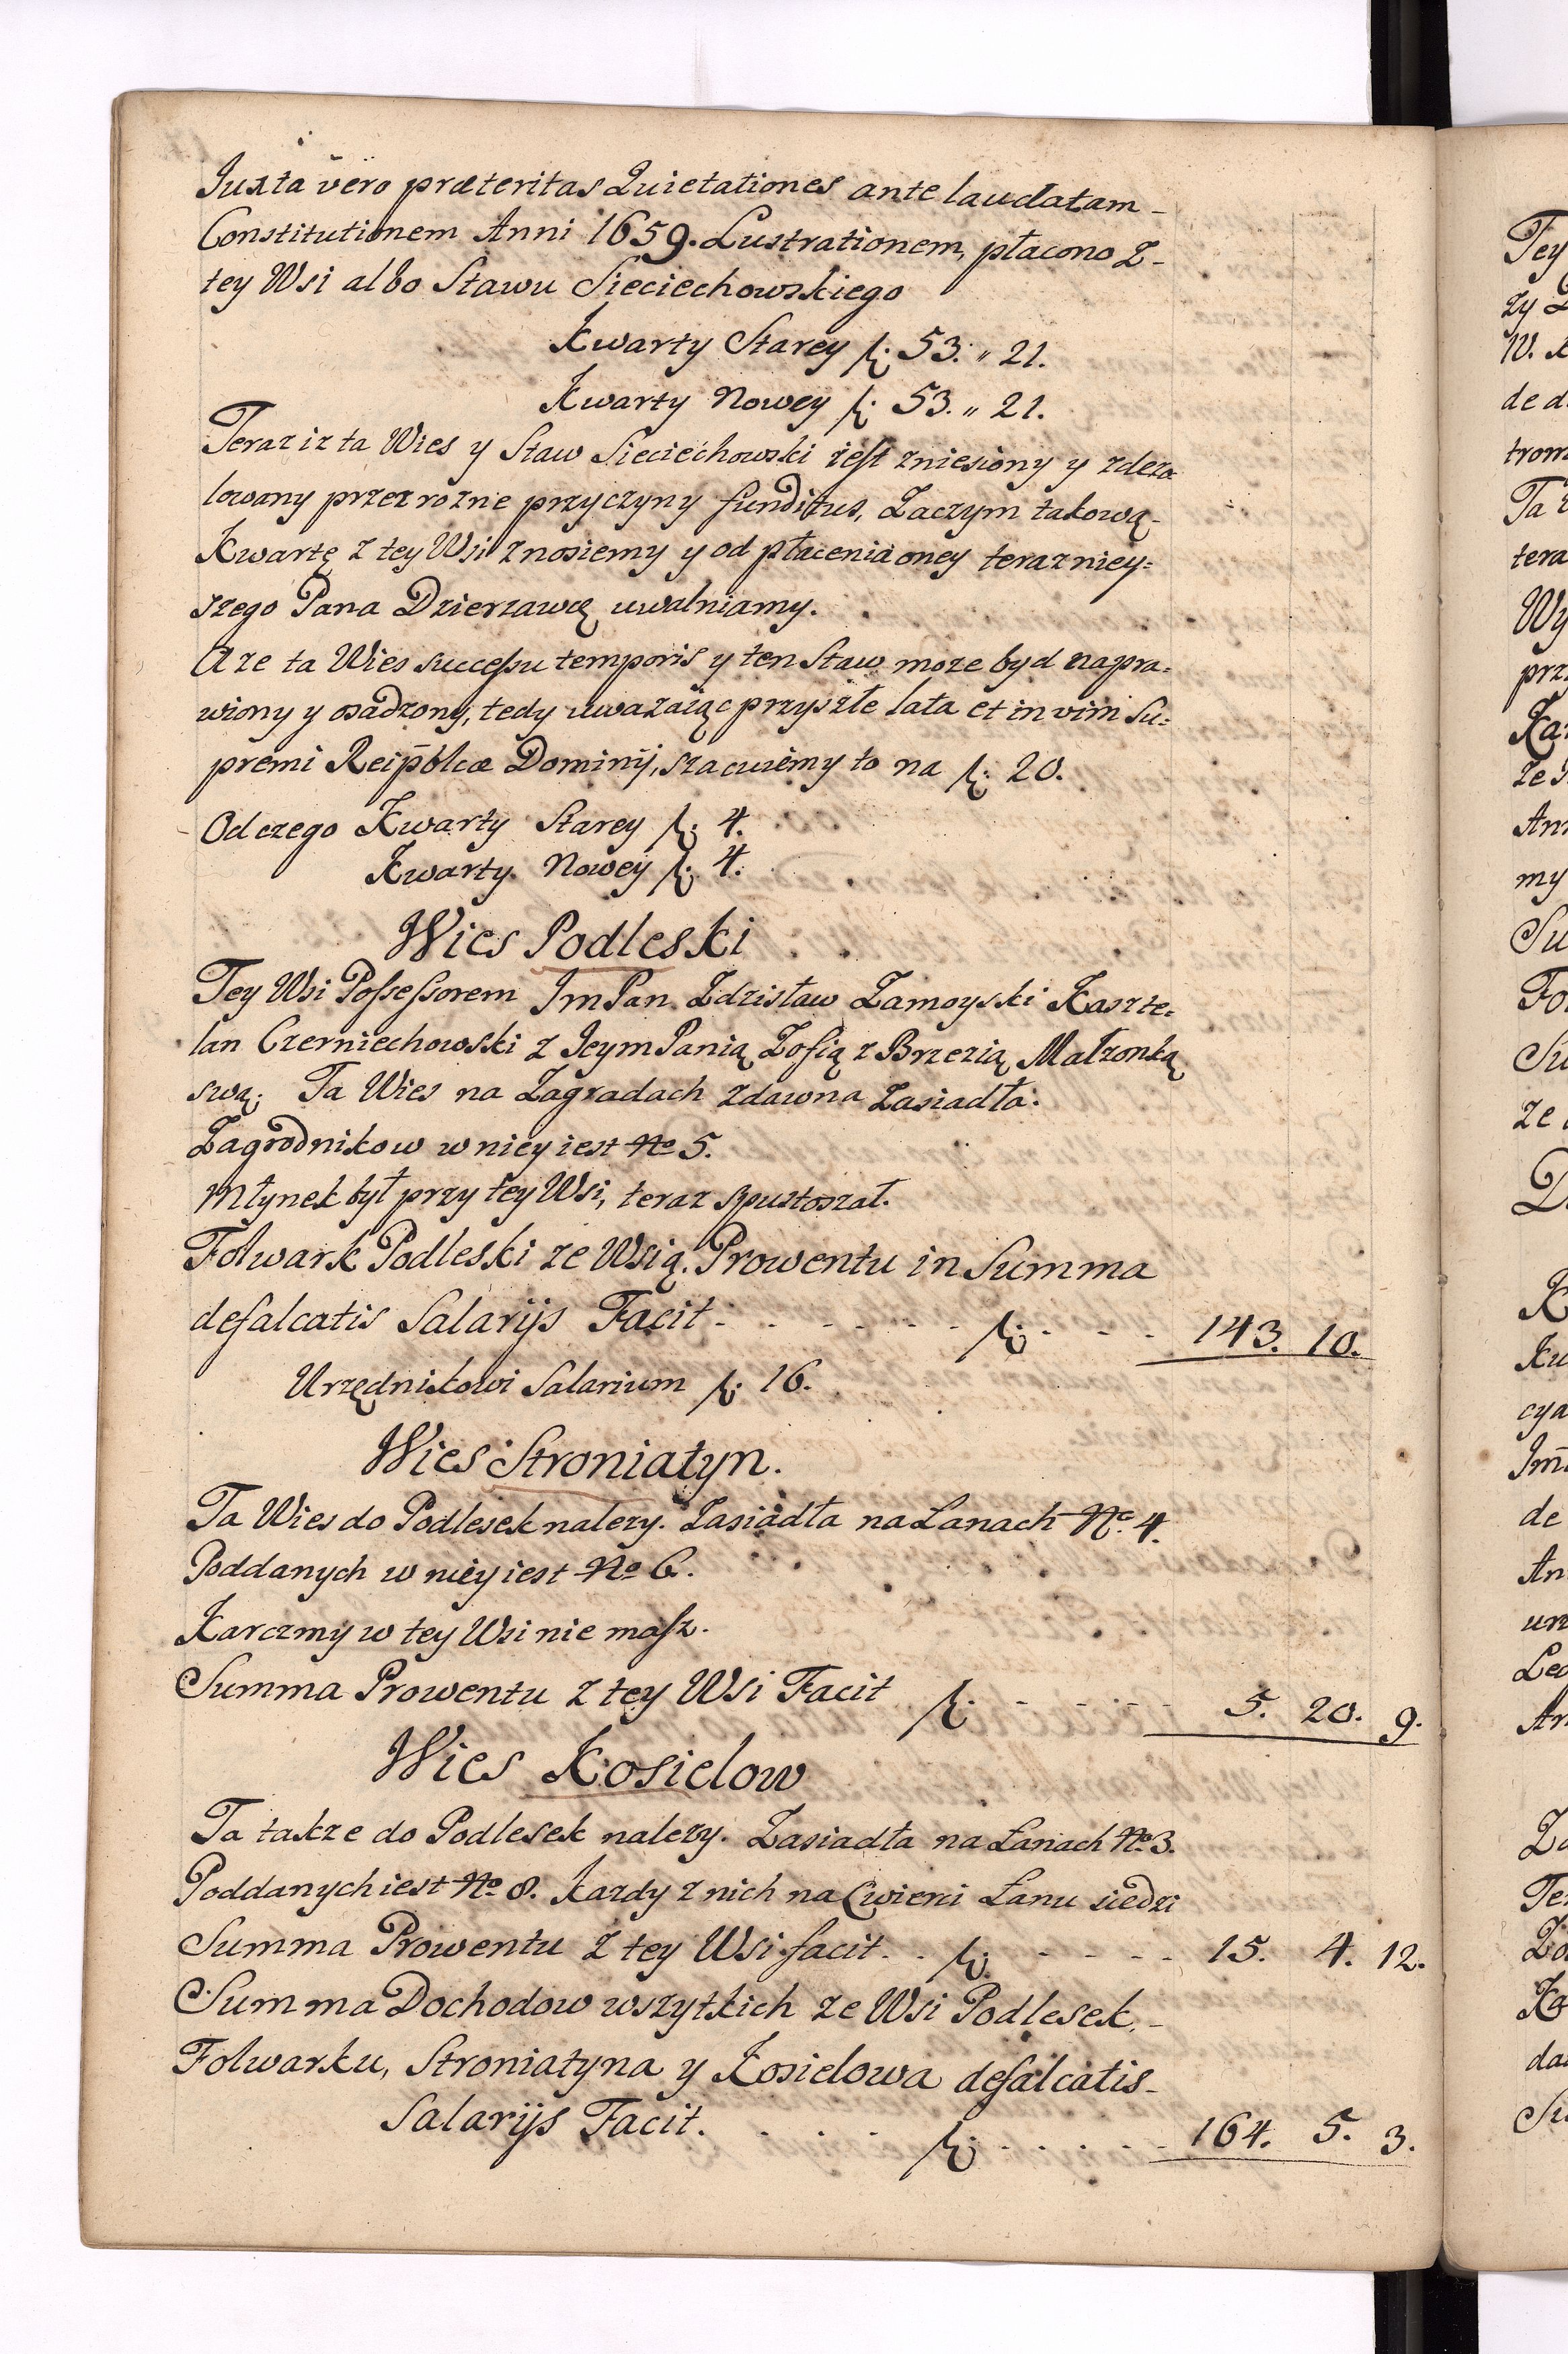 Juxta vero præteritas Quietationes ante laudatam
Constitutionem Anni 1659. Lustrationem, płacono z
tey Wsi albo Stawu Sieciechowskiego
Kwarty Starey f: 53. " 21.
Kwarty Nowey f: 53. " 21.
Teraz iz ta Wies y Staw Sieciechowski iest zniesiony y zdezo
lowany przez rozne przyczyny funditus, Zaczym takową
Kwartę z tey Wsi znosiemy y od płacenia oney teraz niey=
szego Pana Dzierzawcę uwalniamy.
A ze ta Wies successu temporis y ten Staw moze byd napra=
wiony y osadzony, tedy uwazaiąc przyszłe lata et in vim Su=
premi Reipblcæ Dominij, szacuiemy to na f: 20.
Od czego Kwarty Starey f: 4.
Kwarty Nowey f: 4.
Wies Podleski
Tey Wsi Possessorem Jm Pan Zdzisław Zamoyski Kaszte=
lan Czerniechowski z Jeym Panią Zofią z Brzezia Małzonką
swą. Ta Wies na Zagradach zdawna zasiadła.
Zagrodnikow w niey iest No 5.
Młynek był przy tey Wsi, teraz spustoszał.
Folwark Podleski ze Wsią. Prowentu in Summa
defalcatis Salarijs Facit - - - - - - f: - - - 143. 10.
Urzędnikowi Salarium f: 16.
Wies Stroniatyn.
Ta Wies do Podlesek nalezy. Zasiadła na Łanach No. 4.
Poddanych w niey iest No 6.
Karczmy w tey Wsi nie masz.
Summa Prowentu z tey Wsi Facit f: - - - - - 5. 20. 9.
Wies Kosielow
Ta takze do Podlesek nalezy. Zasiadła na Łanach No 3.
Poddanych iest No 8. Kazdy z nich na Cwierci Łanu siedzi
Summa Prowentu z tey Wsi facit - - f: - - - - - 15. 4. 12.
Summa Dochodow wszytkich ze Wsi Podlesek,
Folwarku, Stroniatyna y Kosielowa defalcatis
Salarijs Facit. - - - - f: - - - - - 164. 5. 3.